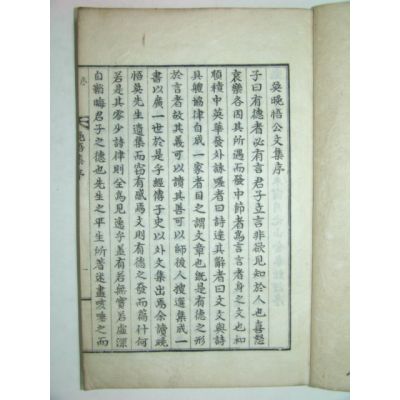 吳晩悟公文集序
子曰有德者必有言君子立言非欲見知於人也喜怒
哀樂各因其所遇而發中節者爲言言者身之文也和
順積中英華發外詠嗟者曰詩達辭者曰文文與詩
具體協律自成一家者目之謂文章也旣是有德之形
於言者故其義可以讀其善可以師後人搜選集成一
書以廣一世於是乎經傳子史以外文集出焉余讀晩
悟吳先生遺集而窃有感焉文則有德之發而藹什何
若是其零少詩律則全爲見逸乎盖有若無實若虛深
自韜晦君子之德也先生之平生所著述盡咳唾之而
晩悟集序